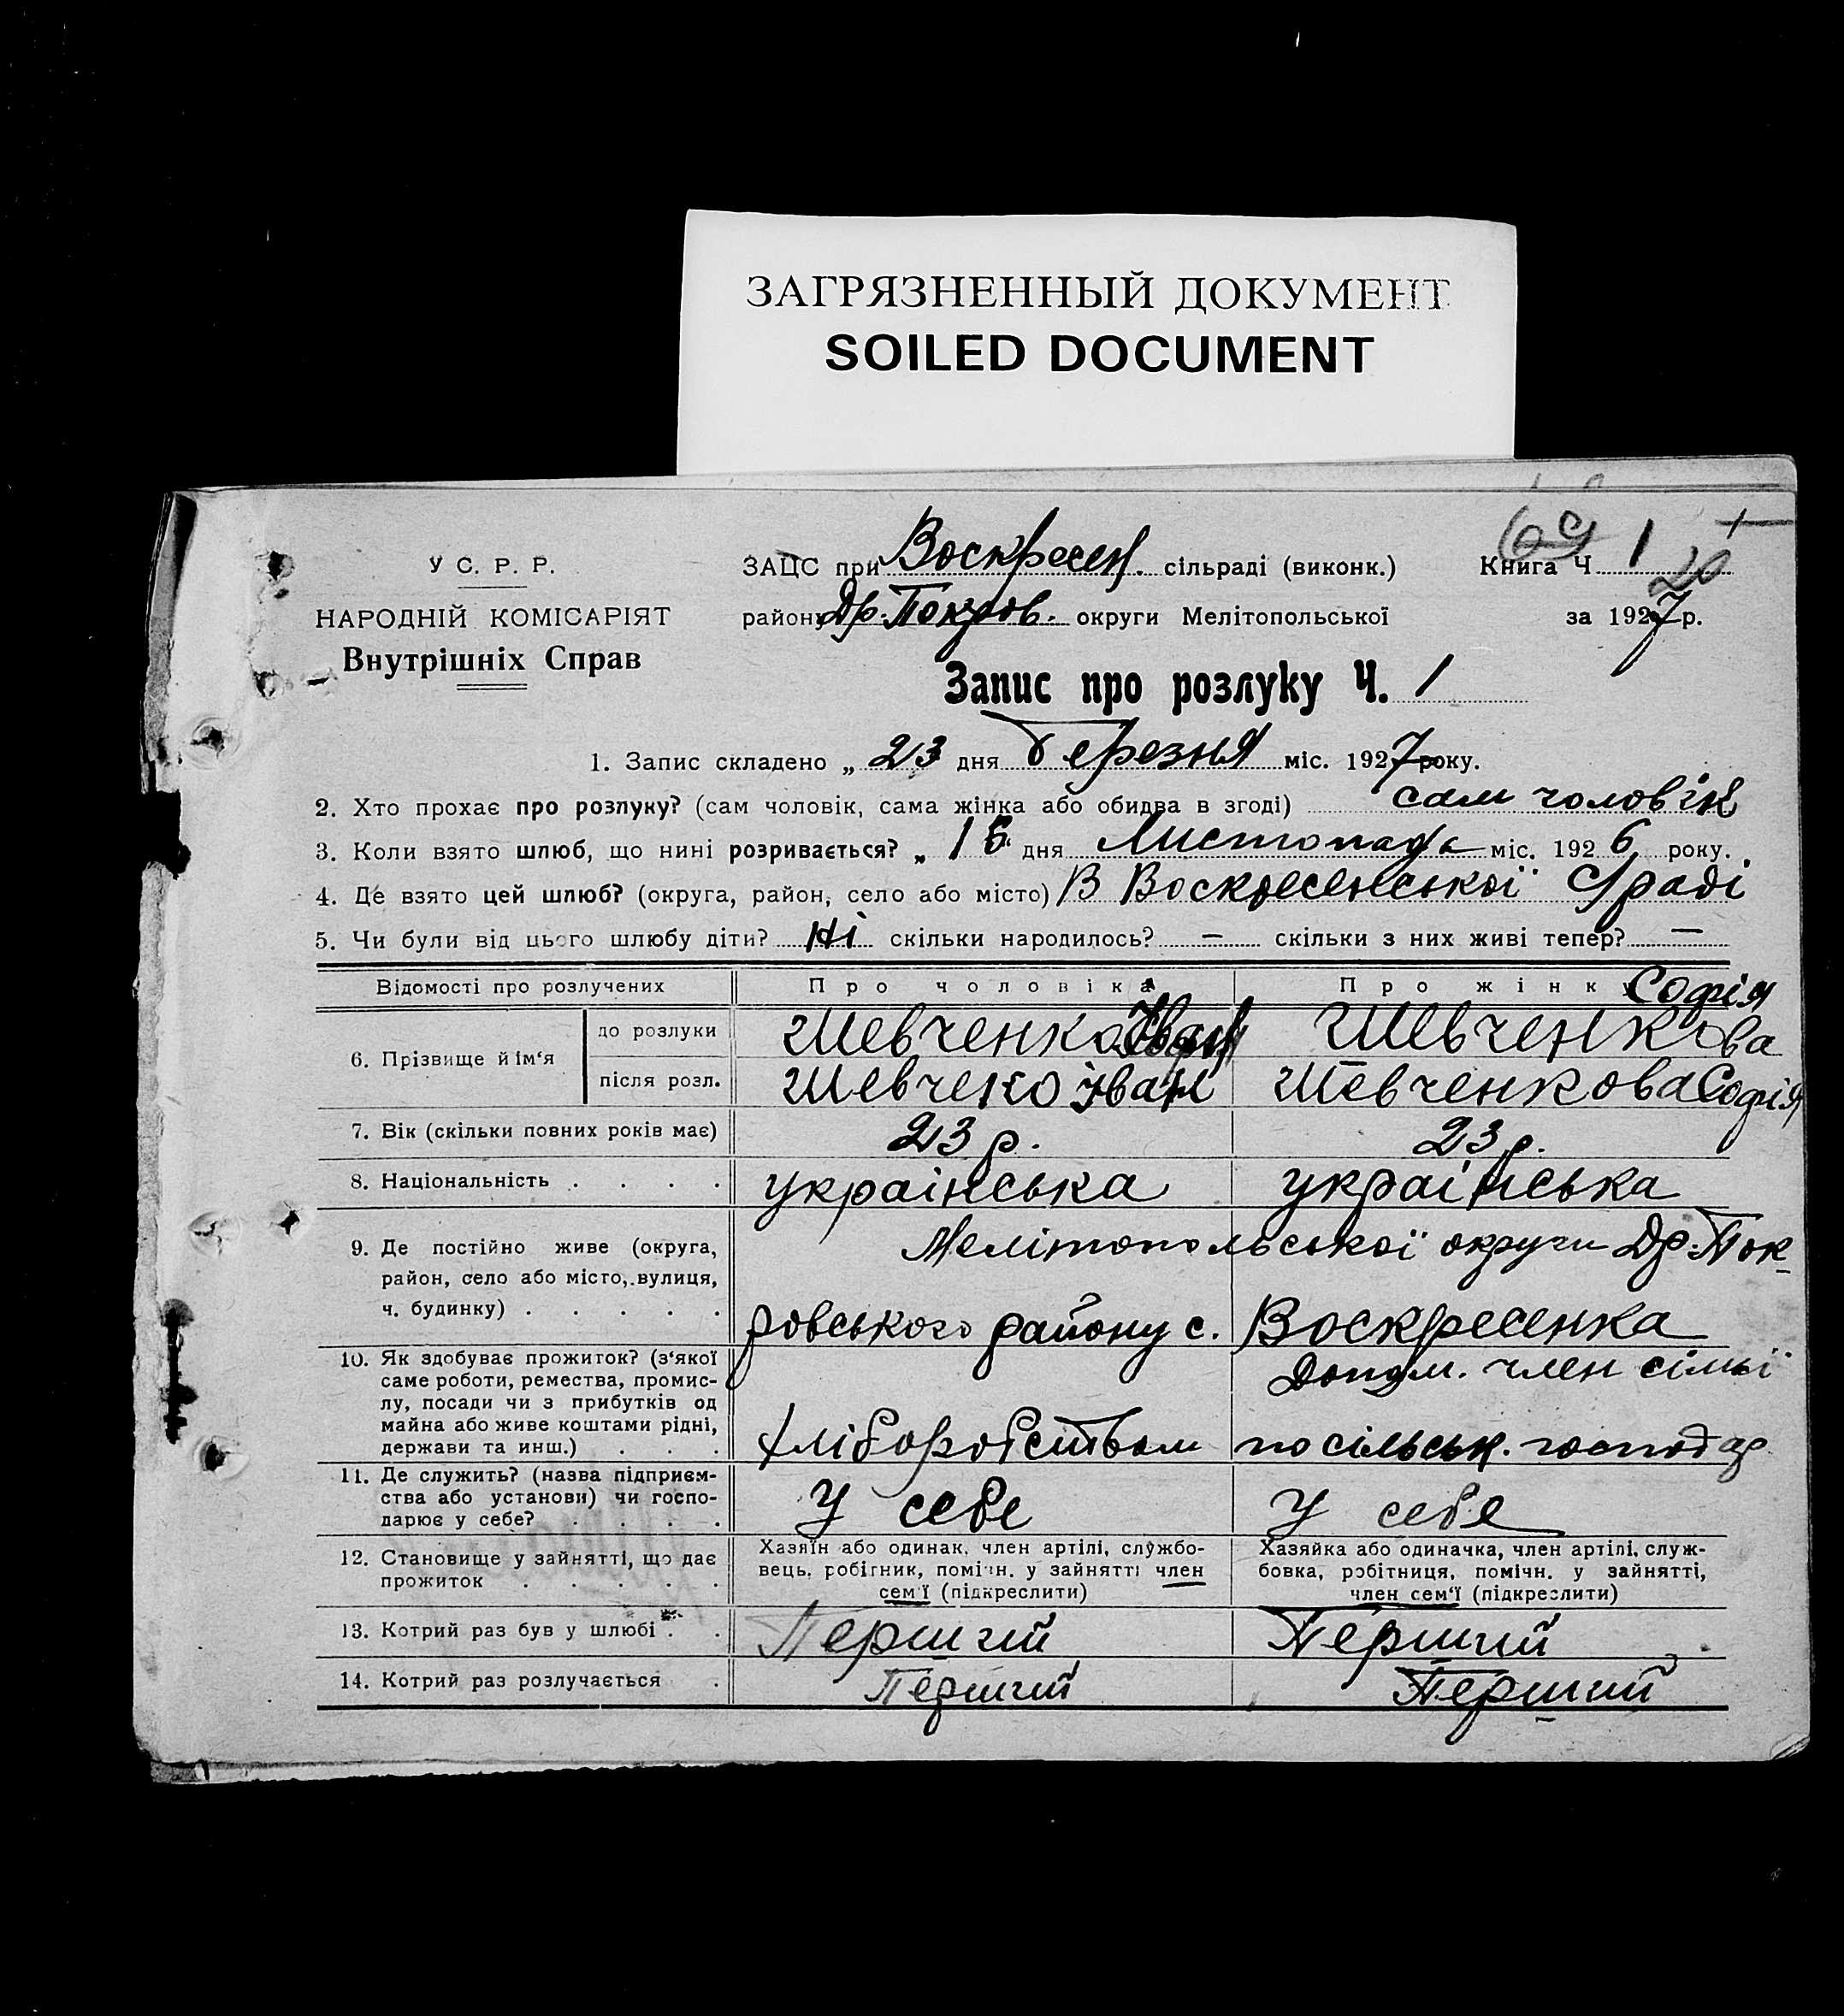 ЗАГРЯЗНЕННЫЙ ДОКУМЕНТ
SOILED DOCUMENT
У С. Р. Р.
НАРОДНІЙ КОМІСАРІЯТ
Внутрішніх Справ
ЗАЦС при Воскресен. сільраді (виконк.)
району Др. Покров. округи Мелітопольської
69
Книга Ч. 1
20
за 1927 р.
Запис про розлуку Ч. 1
1. Запис складено „ 23 дня Березня міс. 1927 року.
2. Хто прохає про розлуку? (сам чоловік, сама жінка або обидва в згоді) сам чоловік
3. Коли взято шлюб, що нині розривається? „ 15 " дня Листопада міс. 1926 року.
4. Де взято цей шлюб? (округа, район, село або місто) В Воскресенської С/раді
5. Чи були від цього шлюбу діти? Ні скільки народилось? — скільки з них живі тепер? —
Відомості про розлучених Про чоловіка Про жінку
6. Прізвище й ім'я
до розлуки Шевченко Іван Шевченкова Софія
після розл. Шевчеко Іван Шевченкова Софія
7. Вік (скільки повних років має) 23 р. 23 р.
8. Національність . . . . українська українська
9. Де постійно живе (округа, район, село або місто, вулиця, ч. будинку) . . . . .
Мелітопольської округи Др. Пок-
ровського району с. Воскресенка
10. Як здобуває прожиток? (з'якої
саме роботи, ремества, промис-
лу, посади чи з прибутків од
майна або живе коштами рідні,
держави та инш.) . . .
хліборобством
Допом. член сімьї
по сільськ. господар.
11. Де служить? (назва підприєм-
ства або установи) чи госпо-
дарює у себе? . . . .
У себе У себе
12. Становище у зайнятті, що дає
прожиток . . . . .
Хазяїн або одинак, член артілі, службо-
вець, робітник, помічн. у зайнятті член
сем'ї (підкреслити)
Хазяйка або одиначка, член артілі, служ-
бовка, робітниця, помічн. у зайнятті,
член сем'ї (підкреслити)
13. Котрий раз був у шлюбі . . Перший Перший
14. Котрий раз розлучається . Перший Перший